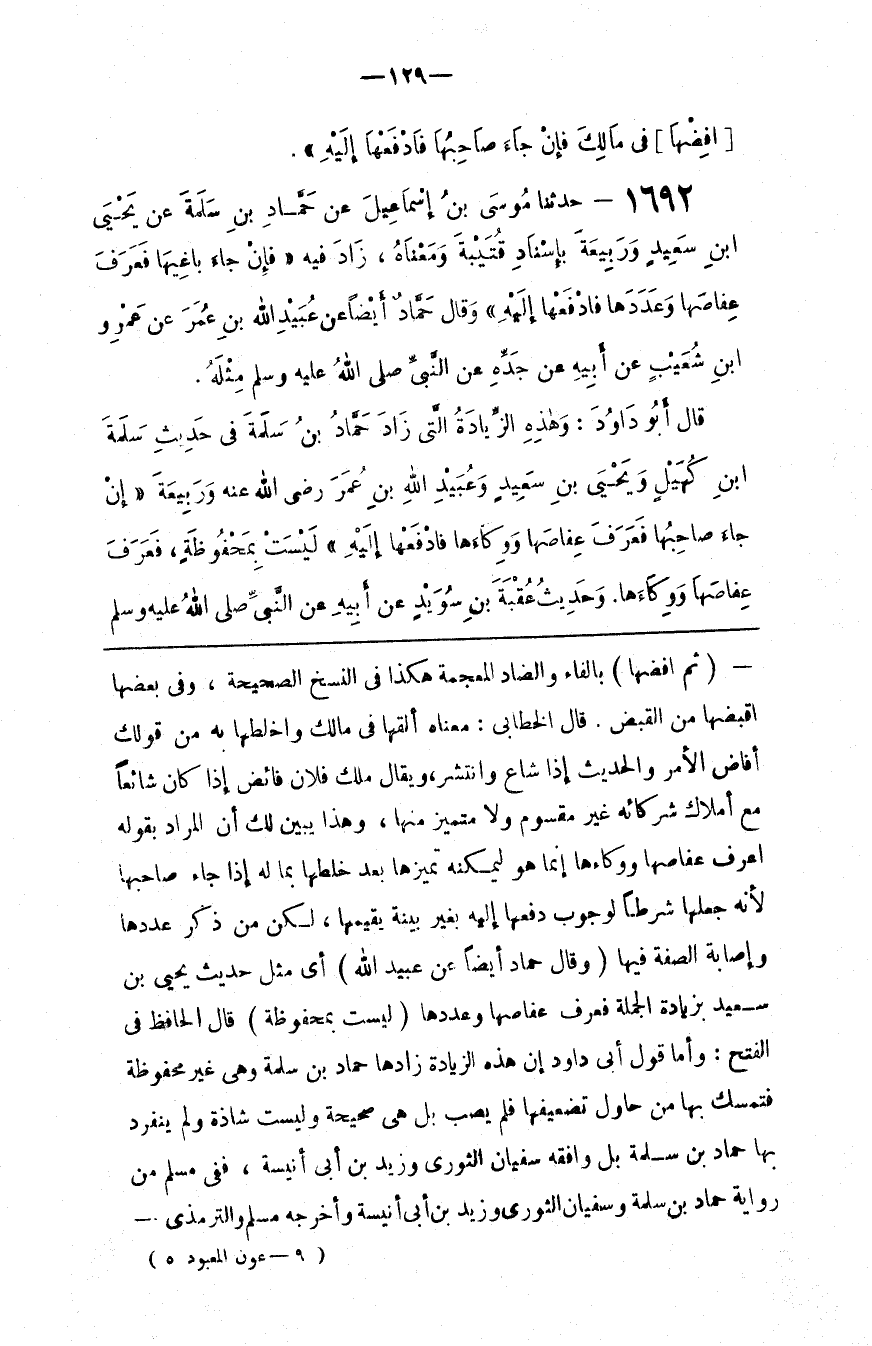 —١٢٩—
[ افِضْهَا ] فى مَالِكَ فإِنْ جاَءَ صاَحِبُهَا فَادْفَعْهَا إِلَيْهِ » .
١٦٩٢ — حدثنا مُوسَى بنُ إِسْمَاعِيلَ عن حَمَّـادِ بنِ سَلَمَةَ عن يَحْـيَى
ابنِ سَعِيدٍ وَرَبِيعَةَ بإِسْنَادِ قُتَيْبَةَ وَمَعْنَاهُ ، زَادَ فيه « فإِنْ جاءَ باغِيهَا فَعَرَفَ
عِفاصَها وَعَدَدَها فادْفَعْها إِلَيْهِ » وَقال حَمَّادٌ أَيْضاً عن عُبَيْدِ الله بنِ عُمَرَ عن عَمْرِو
ابنِ شُعَيْبٍ عن أَبِيهِ عن جَدِّهِ عن النَّبىِّ صلى اللهُ عليه وسلم مِثْلَهُ .
قال أَبُو دَاوُدَ : وَهٰذِهِ الزِّيادَةُ الَّتى زَادَ حَمَّادُ بنُ سَلَمَةَ فى حَدِيثِ سَلَمَةَ
ابنِ كُهَيْلٍ وَيَحْـيَى بنِ سَعِيدٍ وَعُبَيْدِ اللهِ بنِ عُمَرَ رضى الله عنه وَرَبِيعَةَ « إِنْ
جاءَ صاحِبُها فَعَرَفَ عِفاصَها وَوِكاَءَها فادْفَعْها إِلَيْهِ » لَيْسَتْ بِمَحْفُوظَةٍ ، فَعَرَفَ
عِفاصَهاَ وَوِكاَءَها. وَحَدِيثُ عُقْبَةَ بنِ سُوَيْدٍ عن أَبِيهِ عن النَّبىِّ صلى اللهُ عليه وسلم
— ( ثم افضها ) بالفاء والضاد المعجمة هكذا فى النسخ الصحيحة ، وفى بعضها
اقبضها من القبض . قال الخطابى : معناه ألقها فى مالك واخلطها به من قولك
أفاض الأمر والحديث إذا شاع وانتشر، ويقال ملك فلان فائض إذا كان شائعاً
مع أملاك شركائه غير مقسوم ولا متميز منها ، وهذا يبين لك أن المراد بقوله
اعرف عفاصها ووكاءها إنما هو ليمـكنه تميزها بعد خلطها بما له إذا جاء صاحبها
لأنه جعلها شرطاً لوجوب دفعها إليه بغير بينة يقيمها ، لـكن من ذكر عددها
وإصابة الصفة فيها ( وقال حماد أيضاً عن عبيد الله ) أى مثل حديث يحيى بن
سـعيد بزيادة الجملة فعرف عفاصها وعددها ( ليست بمحفوظة ) قال الحافظ فى
الفتح : وأما قول أبى داود إن هذه الزيادة زادها حماد بن سلمة وهى غير محفوظة
فتمسك بها من حاول تضعيفها فلم يصب بل هى صحيحة وليست شاذة ولم ينفرد
بها حماد بن سـلمة بل وافقه سفيان الثورى وزيد بن أبى أنيسة ، ففى مسلم من
رواية حماد بن سلمة وسفيان الثورى وزيد بن أبى أنيسة وأخرجه مسلم والترمذى —
( ٩ — عون المعبود ٥ )